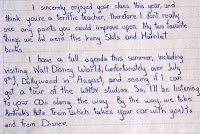 I sincerely enjoyed your class this year, and
think you're a terrific teacher, therefore I don't really
see any points you could improve upon. My favorite
things we did were the Irony Skits and Hamlet
books.
I have a full agenda this summer, including
visiting Walt Disney World (unfortunately over July
4th), Dollywood in August, and seeing if I can
get a tour of the WHSV studios. So, I'll be listening
to your CDs along the way. By the way, we take
Amtrak's Auto Train (which takes your car with you) to
and from Disney.